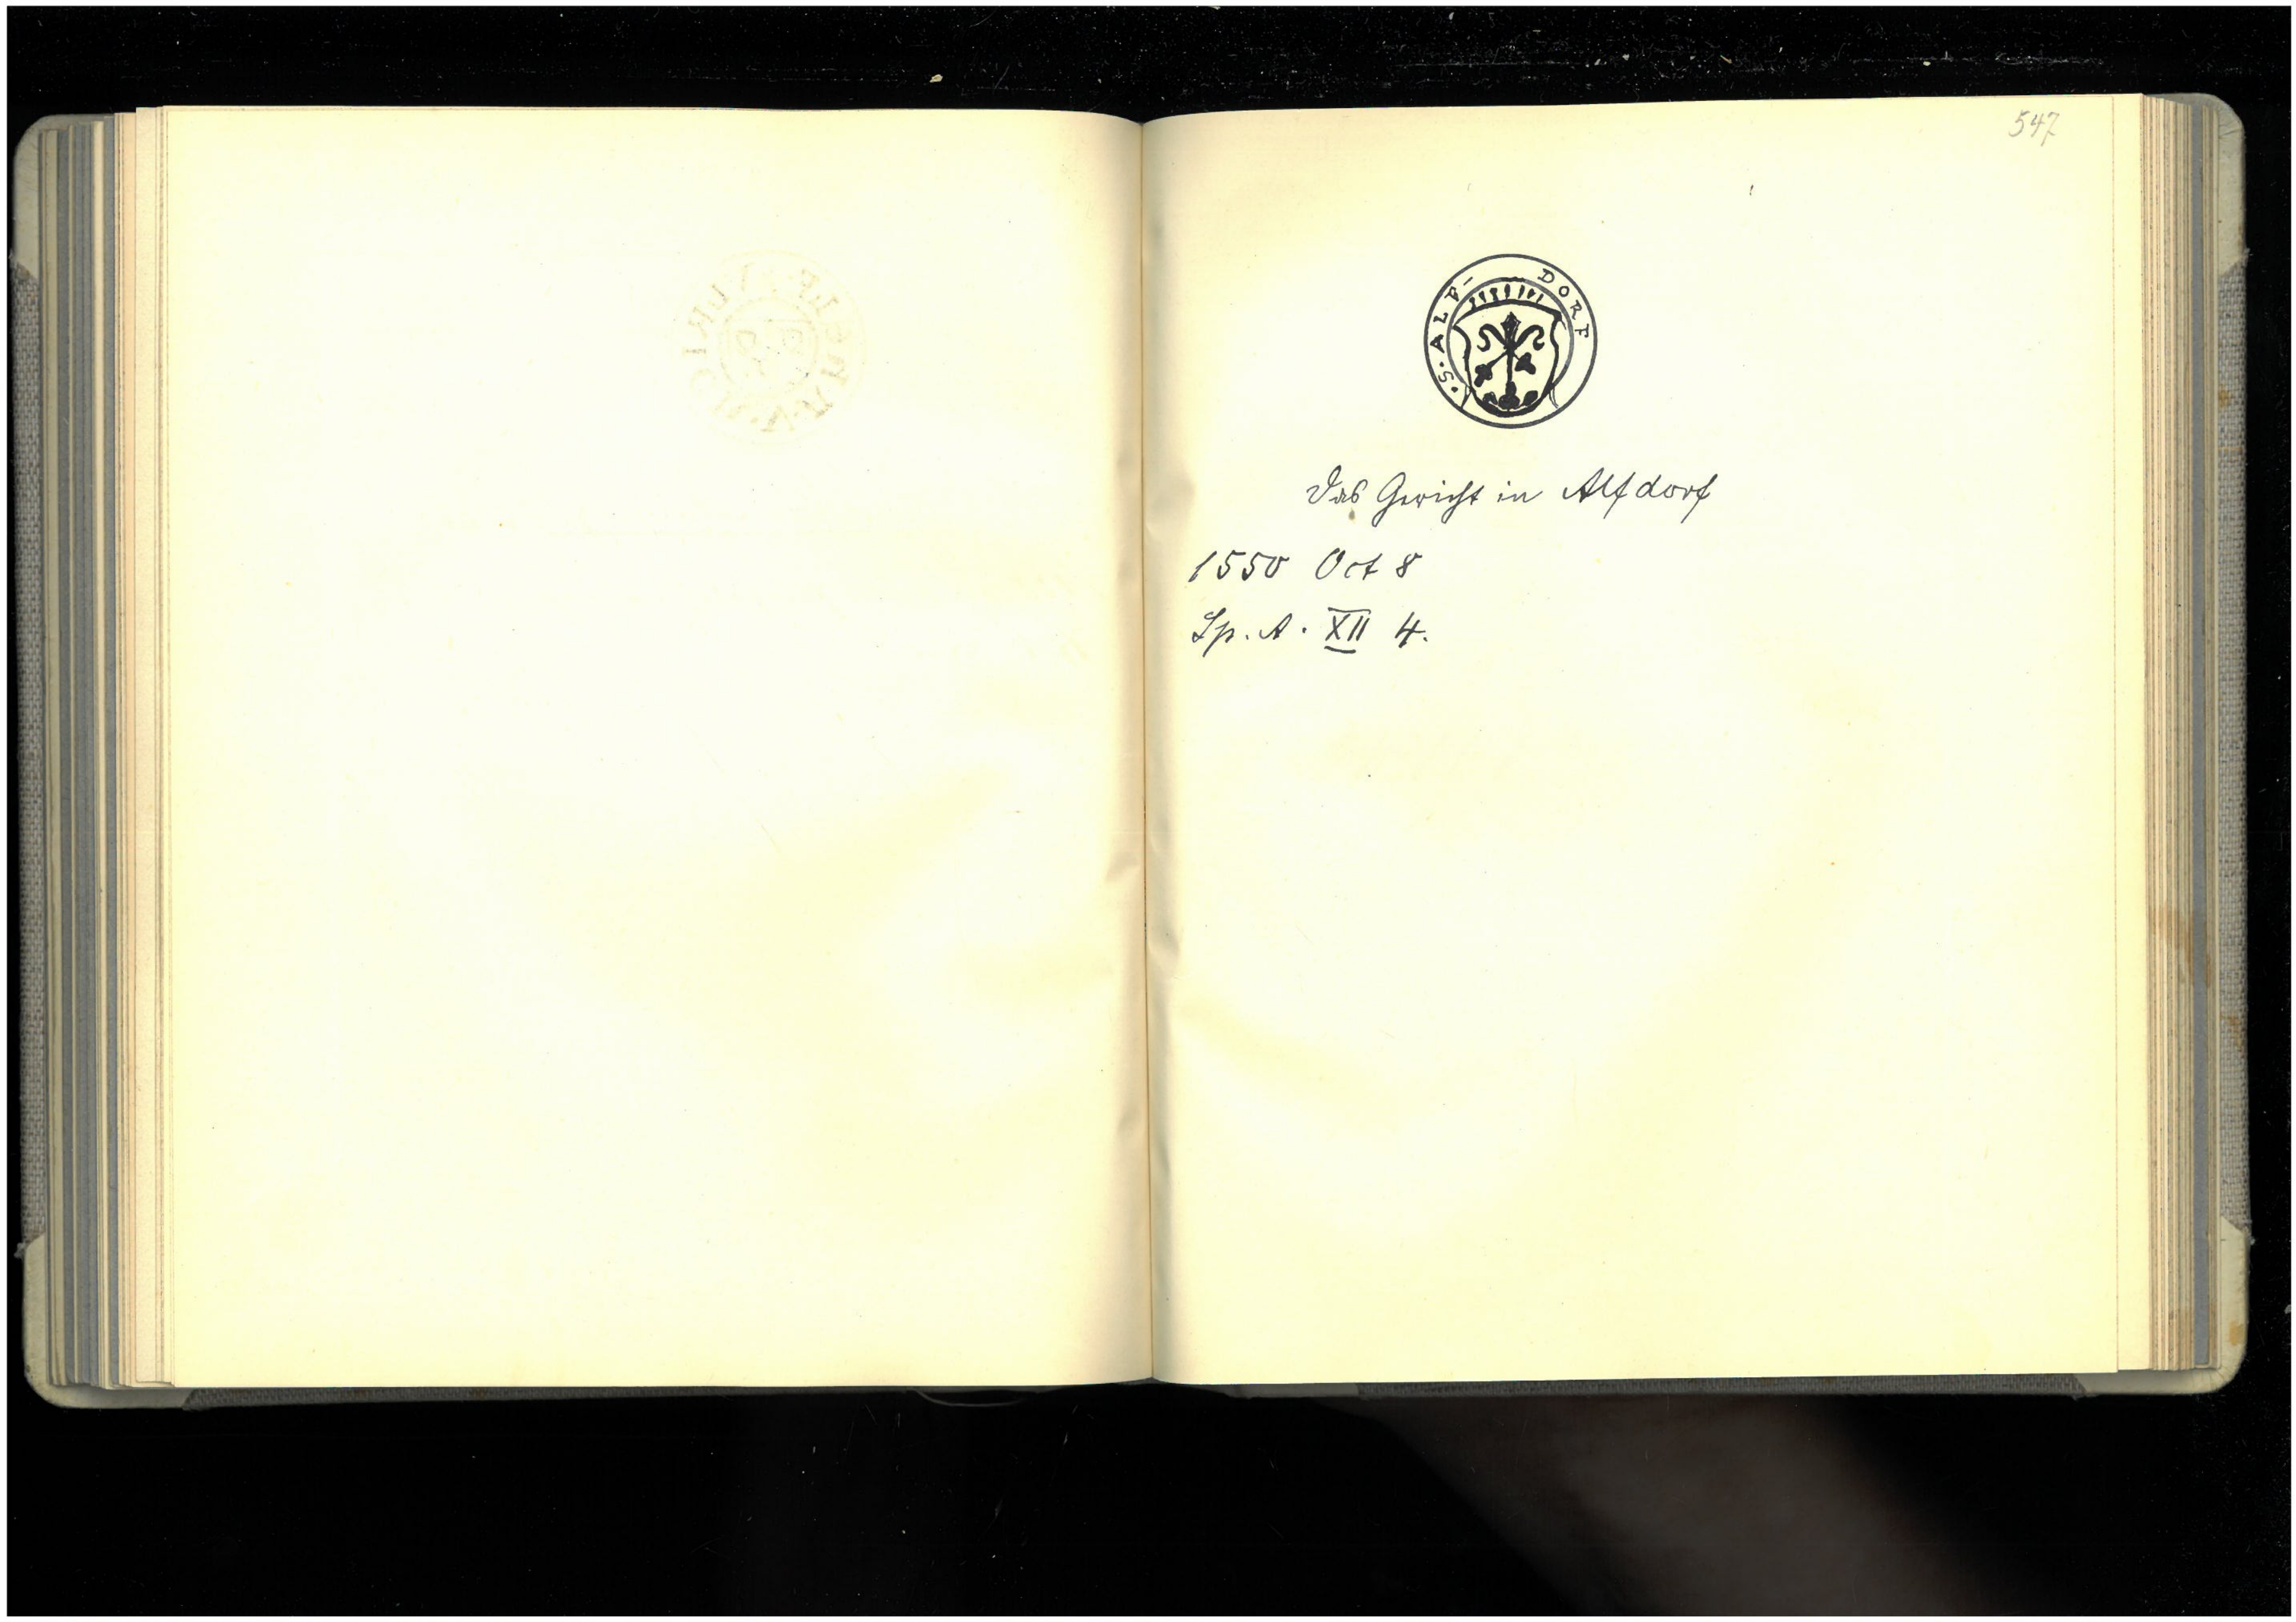 547
· S · ALF- DORF
Das Gericht in Alfdorf
1550 Oct 8
Sp. A. XII 4.